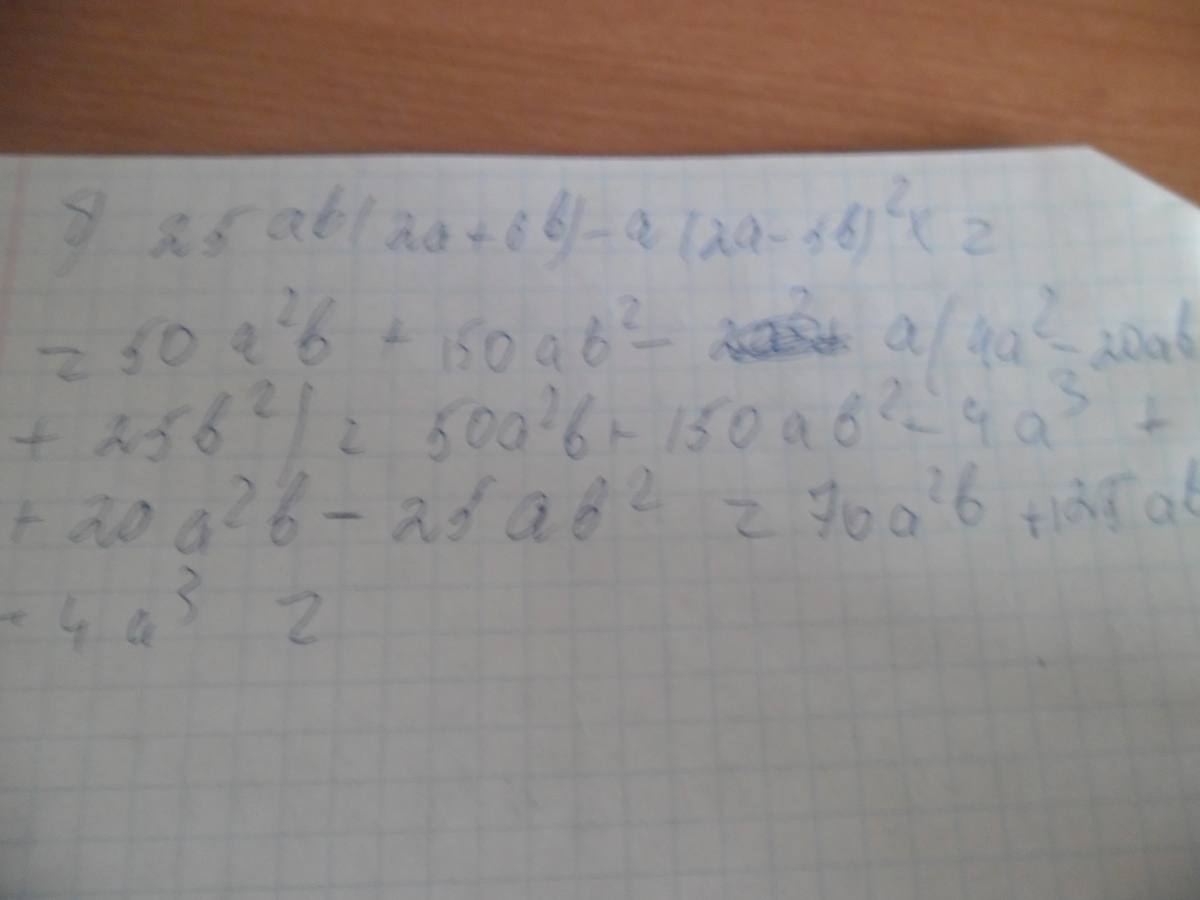 б) 25ab(2a+6b)-a(2a-5b)² =
= 50a²b + 150ab² - a(4a²-20ab
+ 25b²) = 50a²b + 150ab² - 4a³ +
+ 20a²b - 25ab² = 70a²b +125ab
- 4a³ =